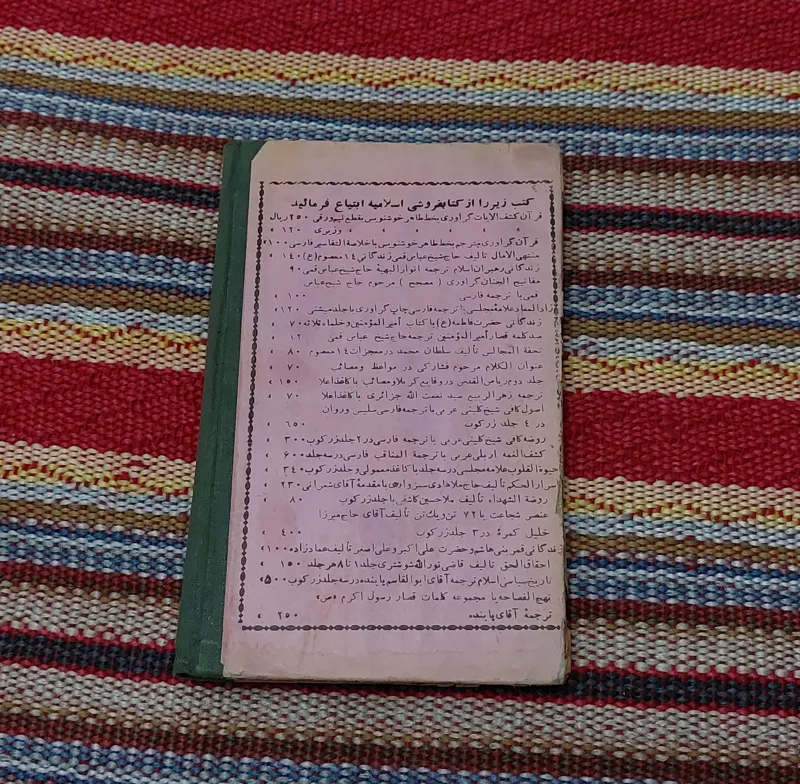 کتب زیر را از کتابفروشی اسلامیه ابتیاع فرمائید
قرآن کشف الایات گراوری بخط طاهر خوشنویس بقطع نیم ورقی ۲۵۰ ریال
« « « « « وزیری ۱۲۰ «
قرآن گراوری مترجم بخط طاهر خوشنویس با خلاصة التفاسیر فارسی ۱۰۰ «
منتهی الامال تالیف حاج شیخ عباس قمی زندگانی ۱۴ معصوم (ع) ۱۴۰ «
زندگانی رهبران اسلام ترجمه انوار البهیة حاج شیخ عباس قمی ۹۰
مفاتیح الجنان گراوری (مصحح) مرحوم حاج شیخ عباس
قمی با ترجمه فارسی ۱۰۰ «
زاد المعاد علامه مجلسی با ترجمه فارسی چاپ گراوری با جلد میشنی ۱۲۰ «
زندگانی حضرت فاطمه (ع) با کتاب أمیر المؤمنین و خلفاء ثلاثه ۷۰ «
صد کلمه قصار أمیر المؤمنین ترجمه حاج شیخ عباس قمی ۱۲ «
تحفة المجالس تألیف سلطان محمد در معجزات ۱۴ معصوم ۸۰ «
عنوان الکلام مرحوم فشارکی در مواعظ ومصائب ۷۰ «
جلد دوم ریاض القدس در وقایع کربلا ومصائب با کاغذ اعلا ۱۵۰ «
ترجمه زهر الربیع سید نعمت الله جزائری با کاغذ اعلا ۷۰ «
اصول کافی شیخ کلینی عربی با ترجمه فارسی سلیس وروان
در ۴ جلد زرکوب ۶۵۰ «
روضه کافی شیخ کلینی عربی با ترجمه فارسی در ۲ جلد زرکوب ۳۰۰ «
کشف الغمه اربلی عربی با ترجمة المناقب فارسی در سه جلد ۶۰۰ «
حیوة القلوب علامه مجلسی در سه جلد با کاغذ معمولی و جلد زرکوب ۳۴۰ «
اسرار الحکم تألیف حاج ملاهادی سبزواری با مقدمهٔ آقای شعرانی ۲۳۰ «
روضة الشهداء تألیف ملاحسین کاشفی با جلد زرکوب ۸۰ «
عنصر شجاعت یا ۷۲ تن ویك تن تألیف آقای حاج میرزا
خلیل کمرهٔ در ۳ جلد زرکوب ۴۰۰ «
زندگانی قمر بنی هاشم و حضرت علی اکبر و علی اصغر تألیف عماد زاده ۱۰۰ «
احقاق الحق تالیف قاضی نور الله شوشتری جلد ۱ تا ۸ هر جلد ۱۵۰ «
تاریخ سیاسی اسلام ترجمه آقای ابوالقاسم پاینده در سه جلد زرکوب ۵۰۰ «
نهج الفصاحه یا مجموعه کلمات قصار رسول اکرم «ص»
ترجمهٔ آقای پاینده ۲۵۰ «